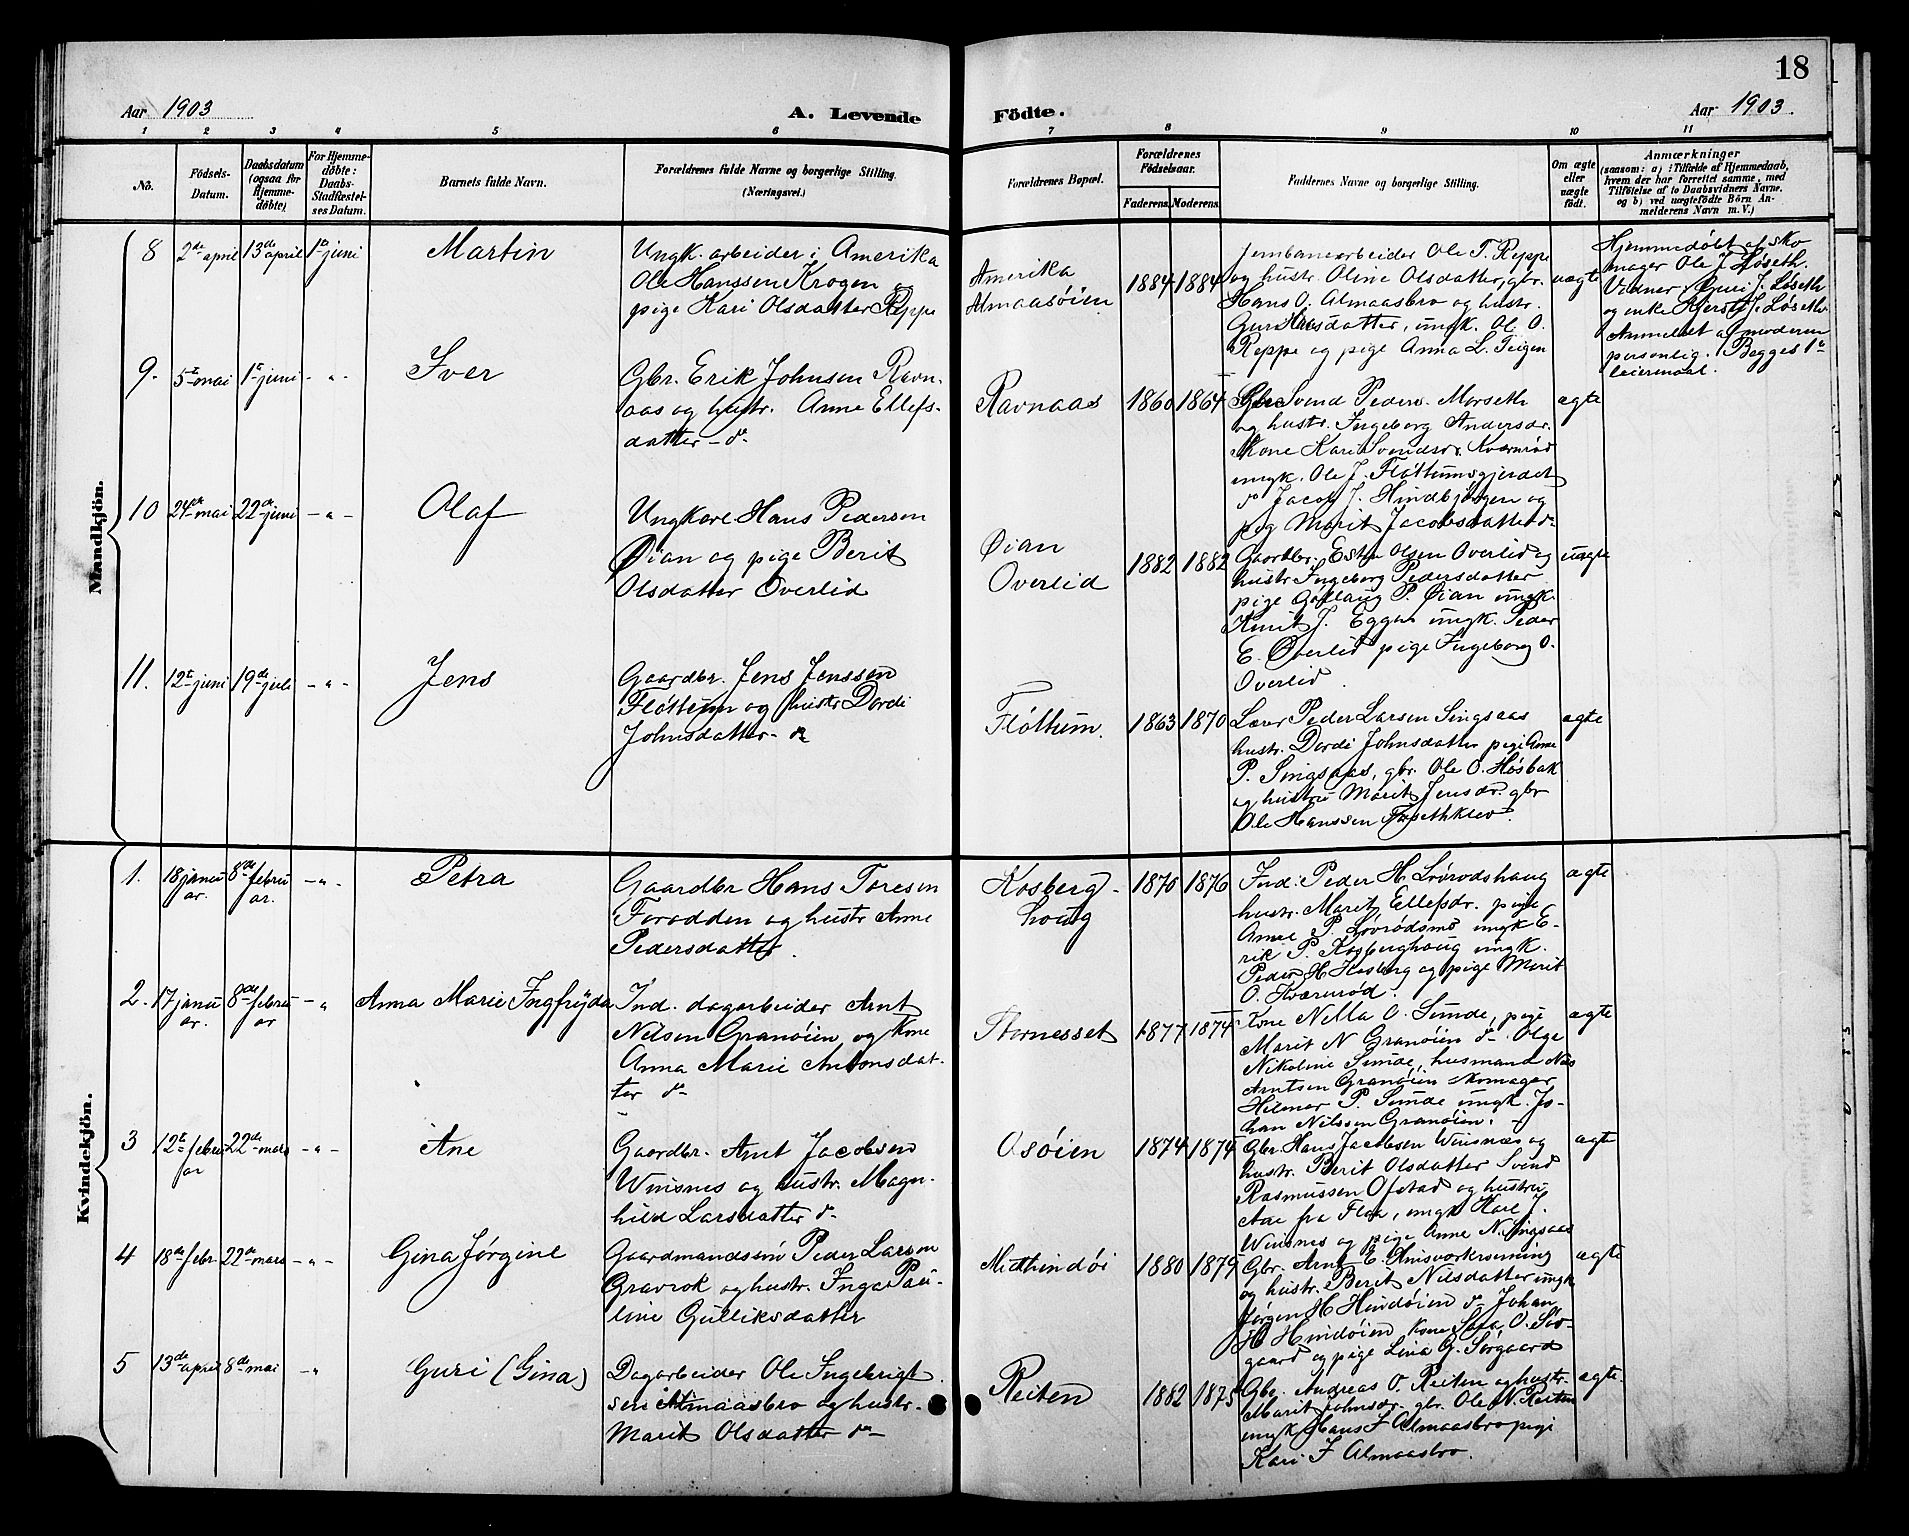 18
Aar 1903
A. Levende
Födte.
Aar 1903.
1 2 3 4 5 6 7 8 9 10 11
No.
Födsels-
Datum.
Daabsdatum
(ogsaa for
Hjemme-
döbte).
For Hjemme-
döbte:
Daabs-
Stadfæstel-
ses Datum.
Barnets fulde Navn.
Forældrenes fulde Navne og borgerlige Stilling.
(Næringsvei.)
Forældrenes Bopæl.
Forældrenes
Födselsaar.
Faderens. Moderens.
Faddernes Navne og borgerlige Stilling.
Om ægte
eller
uægte
födt.
Anmærkninger
(saasom: a) i Tilfælde af Hjemmedaab,
hvem der har forrettet samme, med
Tilföielse af to Daabsvidners Navne,
og b) ved uægtefödte Börn An-
melderens Navn m. V.)
Mandkjön.
8
2de april
13de april
1ste juni
Martin
Ungk. arbeider i Amerika
Ole Hanssen Krogen og
pige Kari Olsdatter Reppe
Amerika
Almaasøien
1884 1884
Jernbanearbeider Ole T. Reppe
og hustr. Oline Olsdatter, gbr.
Hans O. Almaasbro og hustr.
Guri Larsdatter, ungk. Ol. O.
Reppe og pige Anna L. Teigen
uægte
Hjemmedøbt af sko
mager Ole J. Løseth.
Vidner: Guri J. Løseth
og enke Kjersti J. Løseth.
Anmeldt af moderen
personlig. Begges 1ste
leiermaal.
9.
5te mai
1ste juni
- " -
Iver
Gbr. Erik Johnsen Ravn-
aas og hustr. Anne Ellefs-
datter do
Ravnaas
1860 1864
Gbr. Svend Peders. Morseth
og hustr. Ingeborg Andersdr.
Kone Kari Svendsdr. Kværnrød
ungk. Ole J. Fløttumsgjerdet
do Jacob J. Hindbjørgen og
pige Marit Jacobsdatter do
ægte
10
24de mai
22de juni
- " -
Olaf
Ungkarl Hans Pedersen
Øian og pige Berit
Olsdatter Overlid
Øian
Overlid
1882 1882
Gaardbr. Esten Olsen Overlid og
hustr Ingeborg Pedersdatter
pige Gollaug P. Øian ungk.
Knut J. Eggen ungk. Peder
E. Overlid pige Ingeborg O.
Overlid.
uægte
11.
12te juni
19de juli
- " -
Jens
Gaardbr. Jens Jenssen
Fløttum og hustr Dordi
Johnsdatter do
Fløttum.
1863 1870
Lærer Peder Larsen Singsaas
hustr. Dordi Johnsdatter pige Anne
P. Singsaas, gbr. Ole O. Høsbak
og hustru Marit Jensdr. gbr
Ole Hanssen
ægte
Kvindekjön.
1.
18 janu
ar.
8de febru
ar.
- " -
Petra
Gaardbr Hans Toresen
Forodden og hustr Anne
Pedersdatter.
Kosberg-
houg
1870 1876
Ind. Peder H. Lørødshaug
hustr. Marit Ellefsdr. pige
Anne P. Lørødsmo ungk E-
rik P. Kosberghoug ungk.
Peder H. Kosberg og pige Marit
O. Kværnrød.
ægte
2.
17 janu
ar.
8de febru
ar
- "
Anna Marie Ingfryda
Ind. dagarbeider Arnt
Nilsen Granøien og Kone
Anna Marie Antonsdat-
ter do
Stornesset
1877 1874
Kone Nella O. Sunde, pige
Marit N Granøien do Olga
Nikoline Sunde, husmand Nils
Arntsen Granøien skomager
Hilmar P. Sunde ungk. Jo-
han Nilssen Granøien.
ægte
3
12te febru
ar
22de mars
- " -
Ane
Gaardbr. Arnt Jacobsen
Winsnes og hustr. Magn-
hild Larsdatter do
Osøien
1874 1874
Gbr. Hans Jacobsen Winsnæs og
hustr. Berit Olsdatter Svend
Rasmussen Ofstad og hustru
Ane fra Floa, ungk Kare J.
Winsnes og pige Anne N. Singsaas
ægte
4
18de febr.
22de mars
- " -
Gina Jørgine
Gaardmandssøn Peder Larsen
Gravrok og hustr. Inga Pau-
line Gulliksdatter
Midthindøi
1880 1879
Gbr. Arnt E.
og hustr. Berit Nilsdatter ungk
Jørgen H Hindøien do Johan
H Hindøien Kone O. Sør-
gaard og pige Lina G. Sørgaard
ægte
5
13de april
8de mai
- "
Guri (Gina)
Dagarbeider Ole Ingebrigt
sen Almaasbro og hustr.
Marit Olsdatter do
Reiten
1882 1875
Gbr. Andreas O. Reiten og hustr.
Marit Johnsdr. gbr. Ole N. Reiten
ungk Hans F Almaasbro pige
Kari F Almaasbro.
ægte.